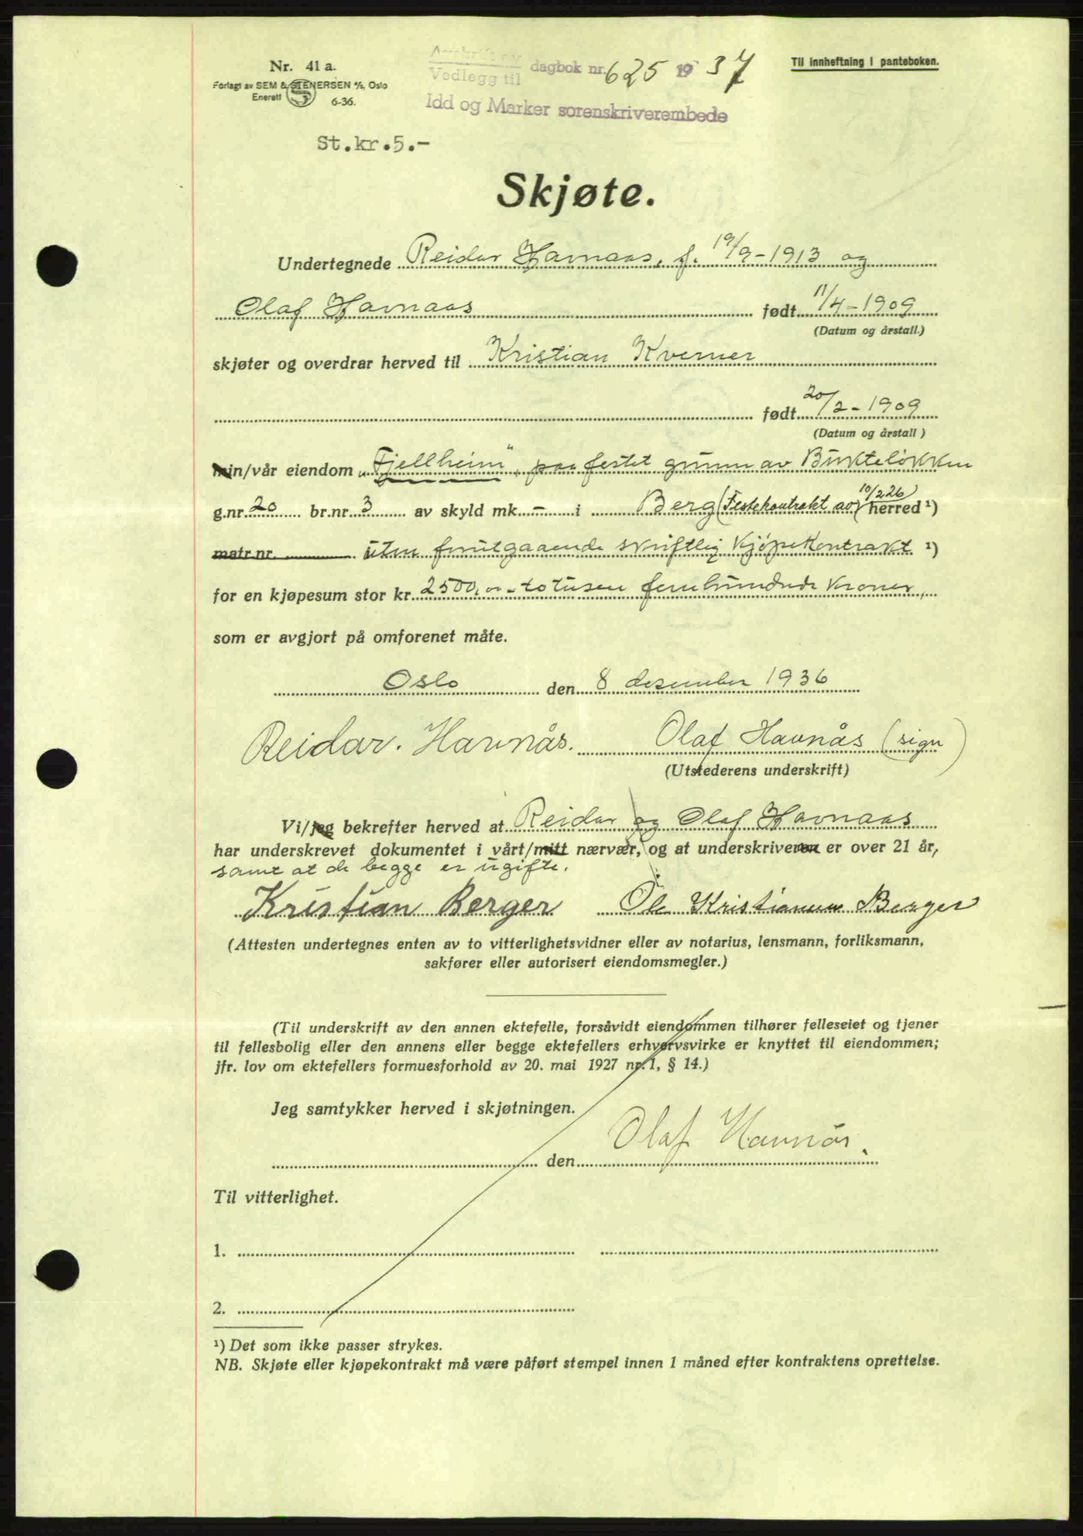 Nr. 41 a.
Forlagt av SEM & STENERSEN A/S, Oslo
Enerett 6-36.
Avskrift av
Vedlegg til dagbok nr. 625 1937
Idd og Marker sorenskriverembede
Til innheftning i panteboken.
St.kr.5.-
Skjøte.
Undertegnede Reidar Havnaas, f. 19/9-1913 og
Olaf Havnaas født 11/4-1909
(Datum og årstall.)
skjøter og overdrar herved til Kristian Kverner
født 20/2-1909
(Datum og årstall)
min/vår eiendom „Fjellheim“, paa festet grunn av Bukteløkken
g.nr. 20 br.nr. 3 av skyld mk. - i Berg (Festekontrakt av 10/2 26) herred ¹)
matr.nr. uten forutgaaende skriftlig kjøpekontrakt ¹)
for en kjøpesum stor kr. 2500,00 - totusen femhundrede kroner,
som er avgjort på omforenet måte.
Oslo den 8 desember 1936
Reidar Havnås. Olaf Havnås (sign)
(Utstederens underskrift)
Vi/jeg bekrefter herved at Reidar og Olaf Havnaas
har underskrevet dokumentet i vårt/mitt nærvær, og at underskriveren er over 21 år,
samt at de begge er ugifte.
Kristian Berger Ole Kristiansen Berger
(Attesten undertegnes enten av to vitterlighetsvidner eller av notarius, lensmann, forliksmann,
sakfører eller autorisert eiendomsmegler.)
(Til underskrift av den annen ektefelle, forsåvidt eiendommen tilhører felleseiet og tjener
til fellesbolig eller den annens eller begge ektefellers erhvervsvirke er knyttet til eiendommen;
jfr. lov om ektefellers formuesforhold av 20. mai 1927 nr. 1, § 14.)
Jeg samtykker herved i skjøtningen.
Olaf Havnås.
den
Til vitterlighet.
1.
2.
¹) Det som ikke passer strykes.
NB. Skjøte eller kjøpekontrakt må være påført stempel innen 1 måned efter kontraktens oprettelse.